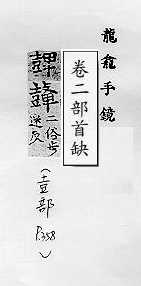 龍龕手鏡
卷二部首缺
二俗步
迷反
(壴部
P.358)